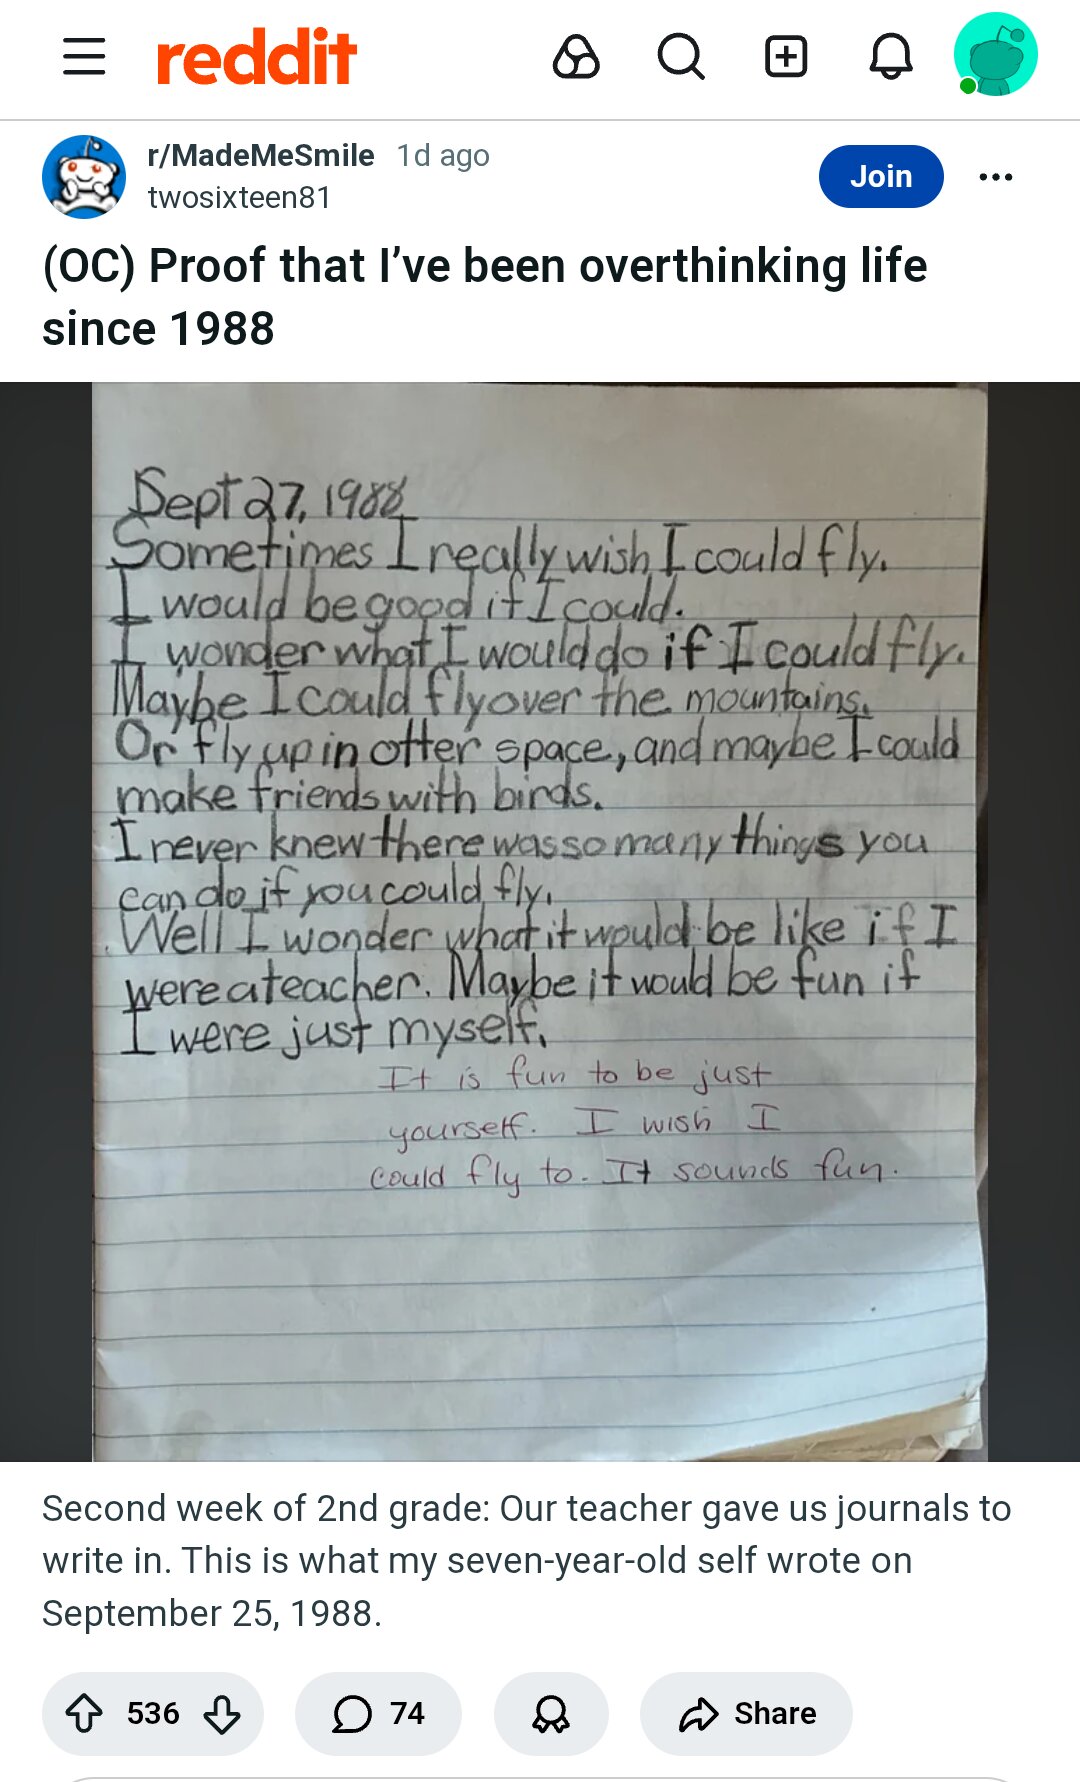 reddit
r/MadeMeSmile 1d ago
twosixteen81
Join
(OC) Proof that I’ve been overthinking life
since 1988
Sept 27, 1988
Sometimes I really wish I could fly.
I would be good if I could.
I wonder what I would do if I could fly.
Maybe I could fly over the mountains.
Or fly up in otter space, and maybe I could
make friends with birds.
I never knew there was so many things you
can do if you could fly.
Well I wonder what it would be like if I
were a teacher. Maybe it would be fun if
I were just myself.
It is fun to be just
yourself. I wish I
could fly to. It sounds fun.
Second week of 2nd grade: Our teacher gave us journals to
write in. This is what my seven-year-old self wrote on
September 25, 1988.
536
74
Share